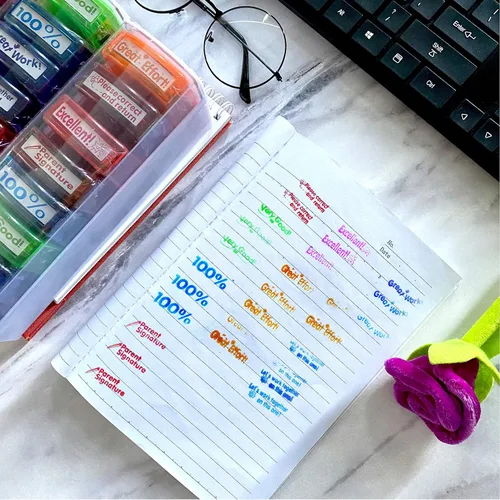 100%
Great Work!
Good!
Great Effort!
Please correct
and return
Excellent!
Parent
Signature
100%
Good!
Alt
Ctrl
Shift
Enter
No.
Date
Please correct
and return
Please correct
and return
Very Good!
Very Good!
Very Good!
Excellent!
Excellent!
100%
100%
100%
Great Effort!
Great Effort!
Great Effort!
Great Effort!
Great Effort!
Great Work!
Great Work!
Great Work!
Parent
Signature
Parent
Signature
Parent
Signature
Let's work together
on this one!
Let's work together
on this one!
Let's work together
on this one!